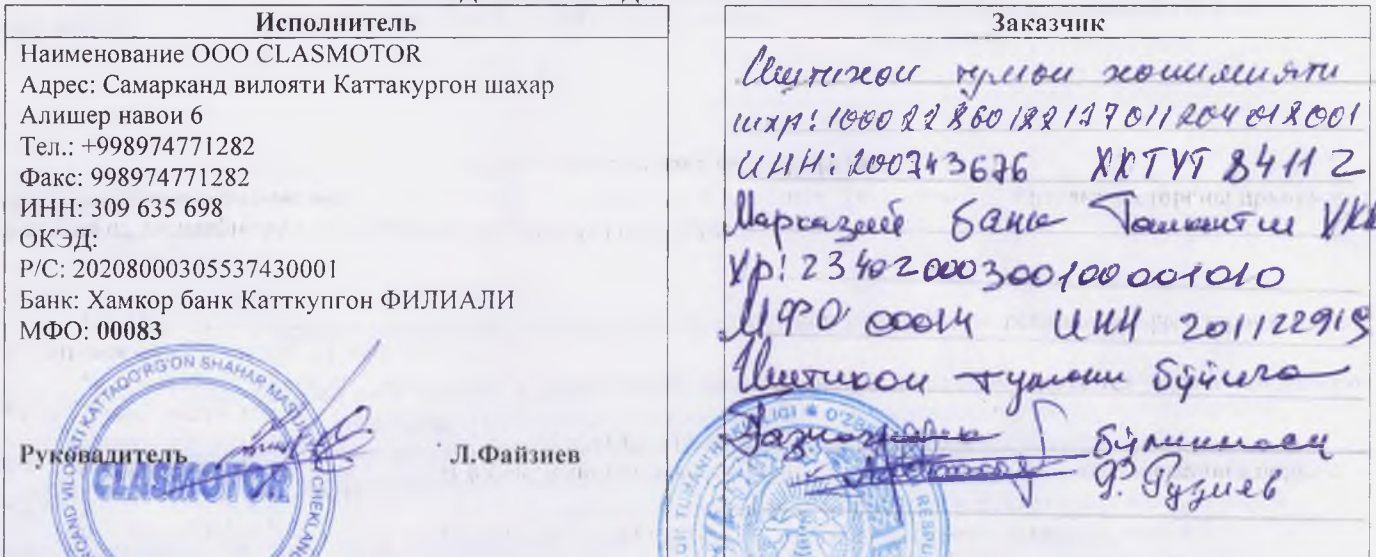 Исполнитель
Наименование ООО CLASMOTOR
Адрес: Самарканд вилояти Каттакургон шахар
Алишер навои 6
Тел.: +998974771282
Факс: 998974771282
ИНН: 309 635 698
ОКЭД:
Р/С: 20208000305537430001
Банк: Хамкор банк Катткупгон ФИЛИАЛИ
МФО: 00083
Руковадитель
Л.Файзиев
CLASMOTOR
KATTAQO'RG'ON SHAHAR
Заказчик
Иштихон туман хокимияти
шхр: 100022860122137011204012001
ИНН: 200743676 ХХТУТ 84112
Марказий банк Тошкент ш
Хр: 23402000300100001010
МФО 00014 ИНН 201122919
Иштихон тумани бўйича
бўлинмаси
Ф. Рузиев